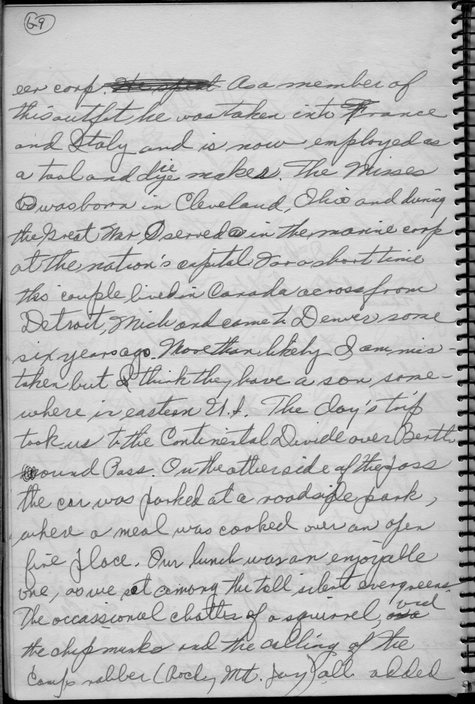 69
eer corp. He spent As a member of
this outfit, he was taken into France
and Italy and is now employed as
a tool and die maker. The Misses
was born in Cleveland, Ohio and during
the Great War, served in the marine corp
at the nation's capital. For a short time
this couple lived in Canada across from
Detroit, Mich and came to Denver some
six years ago. More than likely I am mis-
taken but I think they have a son some-
where in eastern U.S. The day's trip
took us to the Continental Divide over Berth-
oud Pass. On the other side of the pass
the car was parked at a roadside park,
where a meal was cooked over an open
fire place. Our lunch was an enjoyable
one, as we sat among the tall silent evergreens
The occassional chatter of a squirrel, and
the chipmunks and the calling of the
camp robber (Rocky Mt. Jay) all added